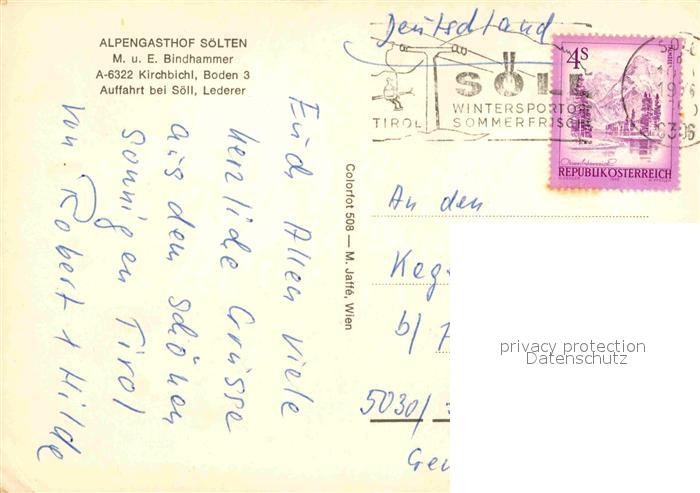 ALPENGASTHOF SÖLTEN
M. u. E. Bindhammer
A-6322 Kirchbichl, Boden 3
Auffahrt bei Söll, Lederer
Euch Allen viele
herzliche Grüsse
aus dem schönen
sonnigen Tirol
von Robert + Hilde
Colorfot 508 — M. Jaffé, Wien
Deutschland
SÖLL
WINTERSPORTO
TIROL SOMMERFRISCH
4S
REPUBLIK ÖSTERREICH
An den
Keg
b/
5030/
privacy protection
Datenschutz